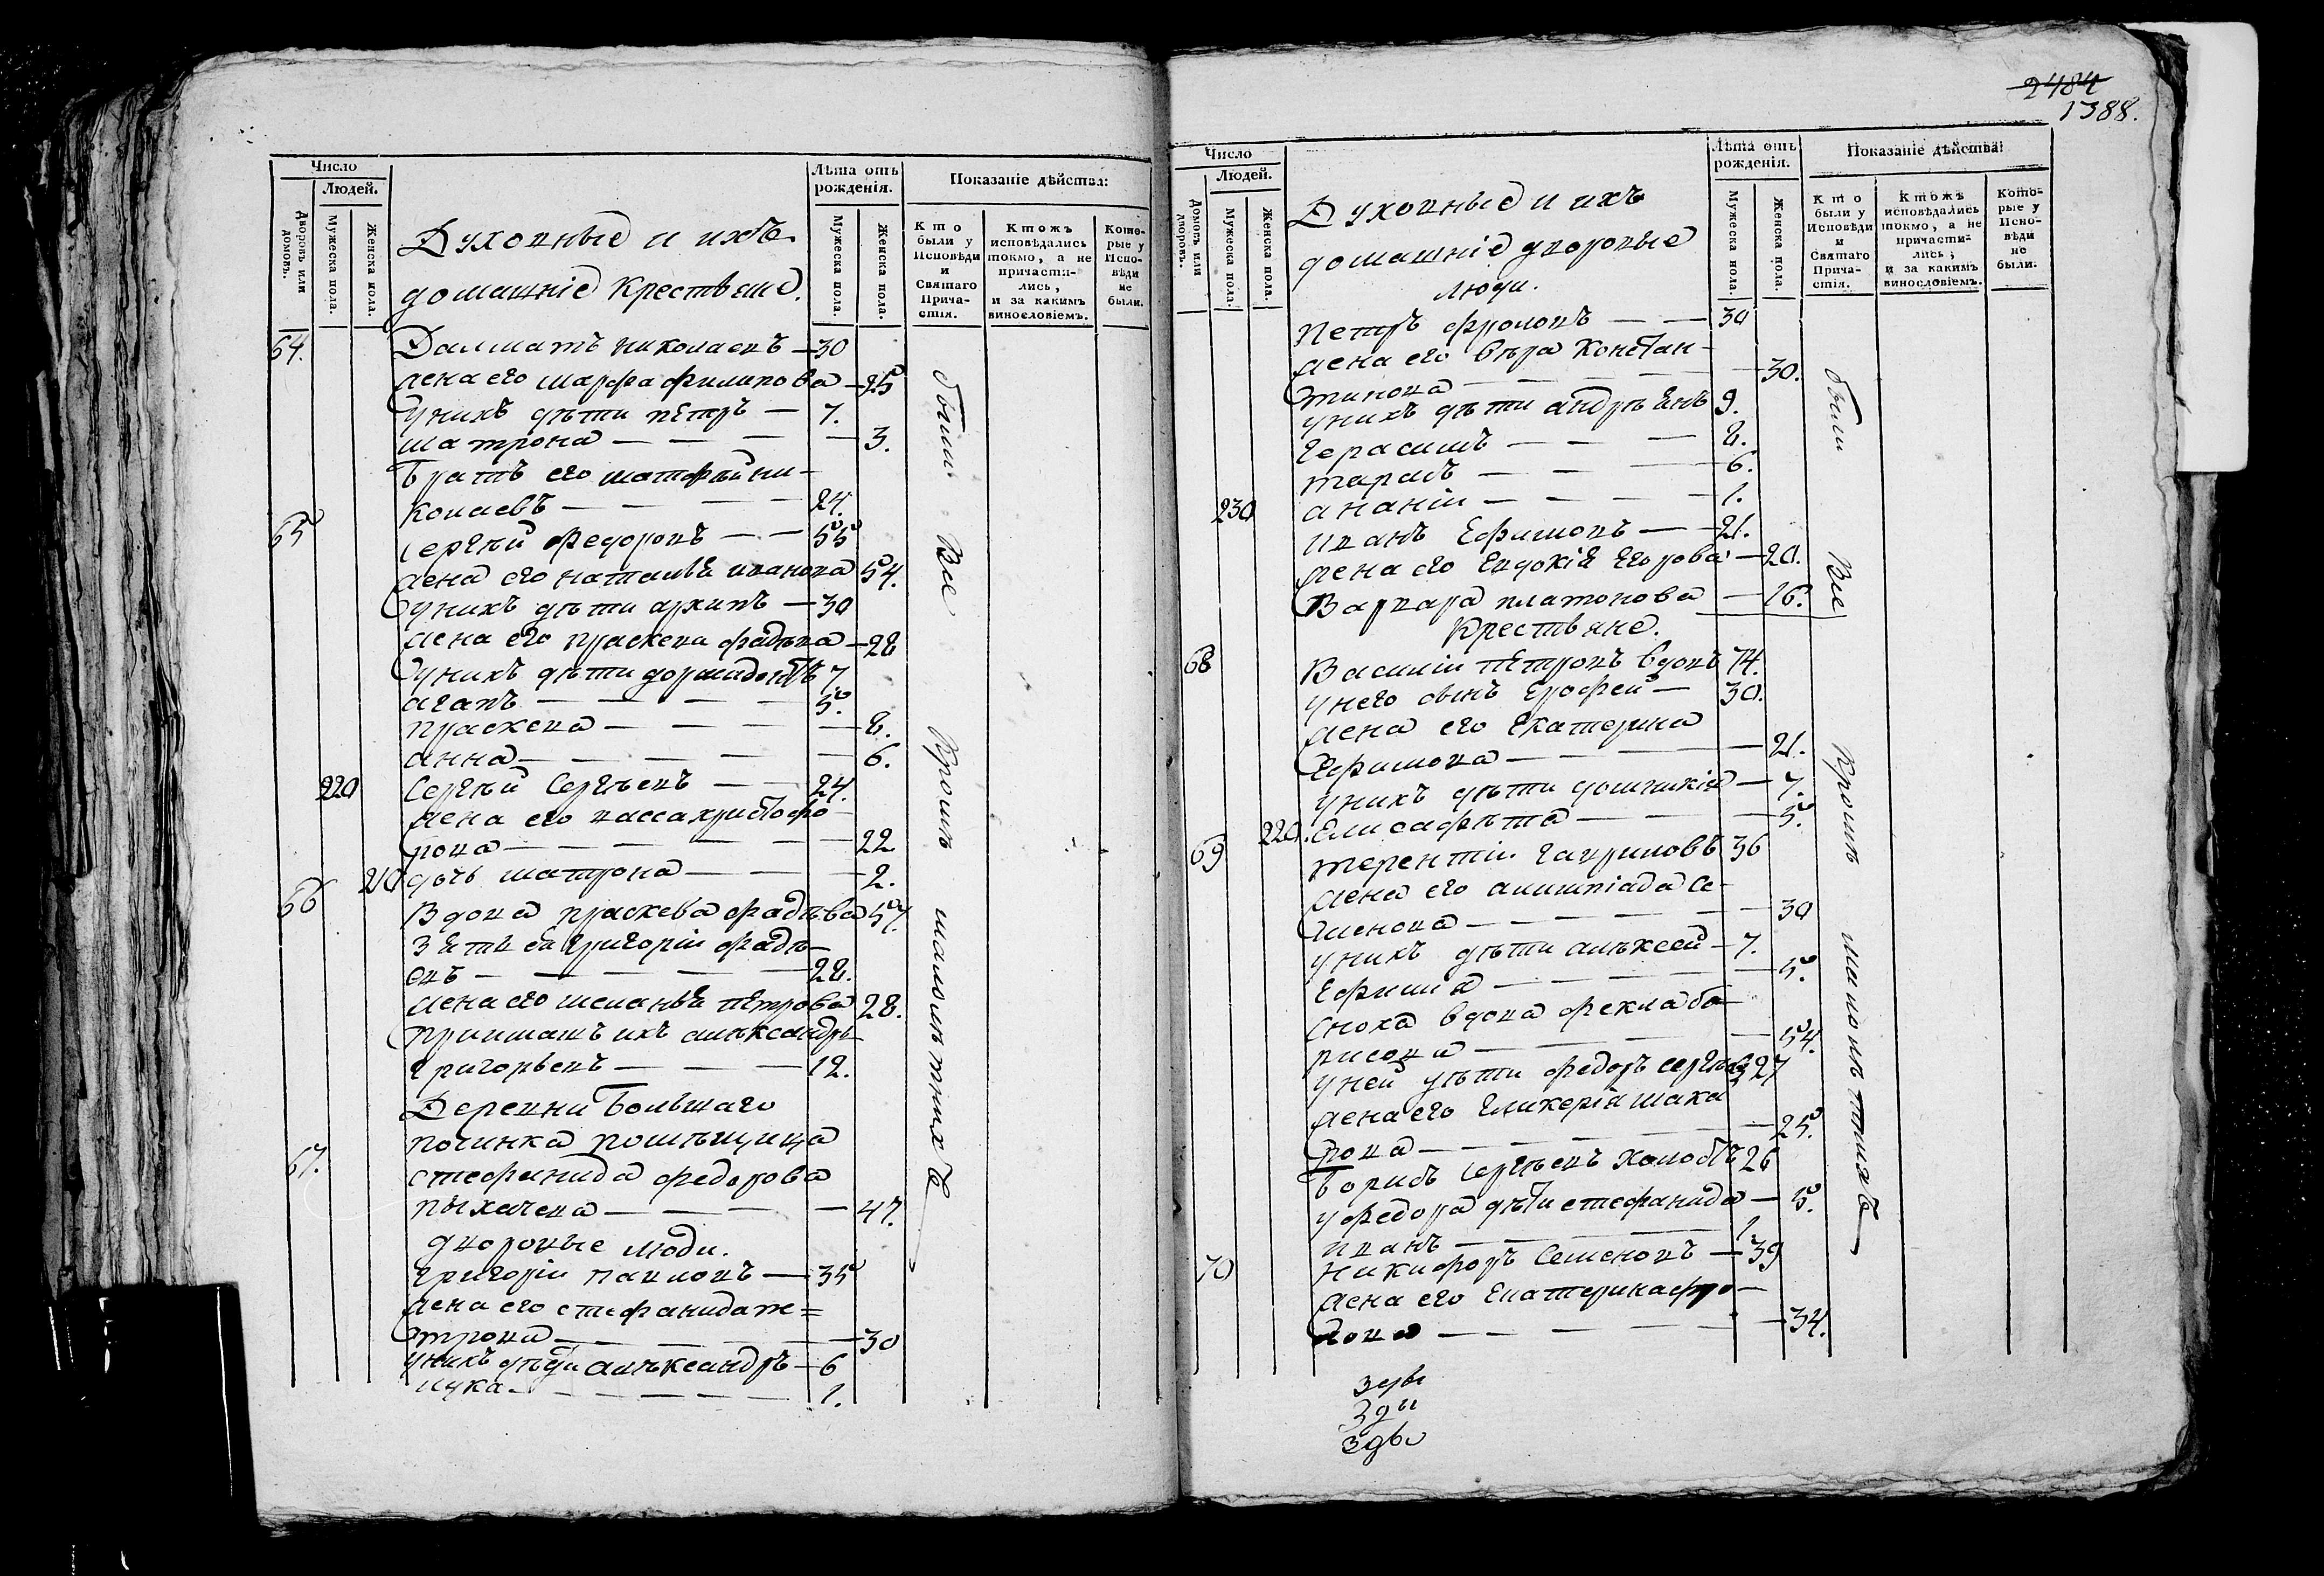 Число
Людей.
Дворовъ или домовъ.
Мужеска пола.
Женска пола.
Духовные и ихъ
домашніе Крестьяне.
Лѣта отъ рожденія.
Мужеска пола.
Женска пола.
Показаніе дѣйства:
Кто были у Исповѣди и Святаго Причастія.
Ктожъ исповѣдались токмо, а не причастились, и за какимъ винословіемъ.
Которые у Исповѣди не были.
64. Далматъ николаевъ — 30
жена его марфа филипова — 25
У нихъ дѣти пётръ — 7.
матрона — — — 3.
Братъ его матфѣй ни-
колаевъ — — — 24.
65 Сергѣй Федоровъ — — 55
жена его наталья иванова 54.
У нихъ дѣти архипъ — 30
жена его праскева фадѣева — 28
У нихъ дѣти дормидонтъ 7
агапъ — — — — 5.
праскева — — — — 8.
анна — — — — 6.
220 Сергѣй Сергѣевъ — — 24.
жена его васса христофо-
рова — — — — 22
210 дочь матрона — — — 2.
66 Вдова праскева фадѣева 57.
Зять ея Григорій фадѣ-
евъ — — — — 28.
жена его меланья пётрова 28.
Приимашъ ихъ алѣксандръ
Григорьевъ — — — 12.
Деревни Большаго
починка помѣщица
67. стефанида федорова
пыхачева — — — — 47.
дворовые люди.
Григорій павловъ — 35
жена его стефанида пе=
трова — — — — 30
У нихъ дѣти алѣксандръ — 6
лука — — — — — 1.
были Все Кромѣ малолѣтныхъ
2484
1388.
Число
Людей.
Домовъ или дворовъ.
Мужеска пола.
Женска пола.
Духовные и ихъ
домашніе дворовые
люди.
Лѣта отъ рожденія.
Мужеска пола.
Женска пола.
Показаніе дѣйства:
Кто были у Исповѣди и Святаго Причастія.
Ктожъ исповѣдались токмо, а не причастились; и за какимъ винословіемъ.
Которые у Исповѣди не были.
Петръ фроловъ — — 30
жена его вѣра Констан-
тинова — — — — 30.
У нихъ дѣти андрѣянъ 9.
Герасимъ — — — 8.
тарасъ — — — 6.
230 ананіи — — — 1.
иванъ Ефимовъ — — 21.
жена его Евдокія Егорова — 20.
Варвара платонова — 16.
Крестьяне.
68 Василіи пётровъ вдовъ 74.
у него сынъ Ерофей — 30.
жена его Екатерина
Ефимова — — — — 21.
У нихъ дѣти домникія — 7.
220. Елисафѣта — — — 5.
69 терентіи гавриловъ 36
жена его алимпіада Се-
менова — — — — 30
у нихъ дѣти алѣксей — 7.
Ефимиа — — — — 5.
Сноха вдова фекла бо-
рисова — — — — 54.
у ней дѣти федоръ сергѣевъ 27
жена его гликерія мака
рова — — — — 25.
Борисъ Сергѣевъ холостъ 26
у федора дѣти стефанида — 5.
иванъ — — — — 1.
70 никифоръ Семеновъ — 39
жена его Екатерина фро-
лова — — — — 34.
были Все Кромѣ малолѣтныхъ